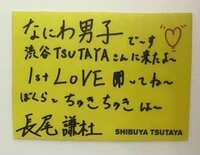 なにわ男子で〜す
渋谷TSUTAYAさんに来たよ〜
1st LOVE 聞いてね〜
ぼくらとちゅきちゅきは〜
長尾謙杜
SHIBUYA TSUTAYA